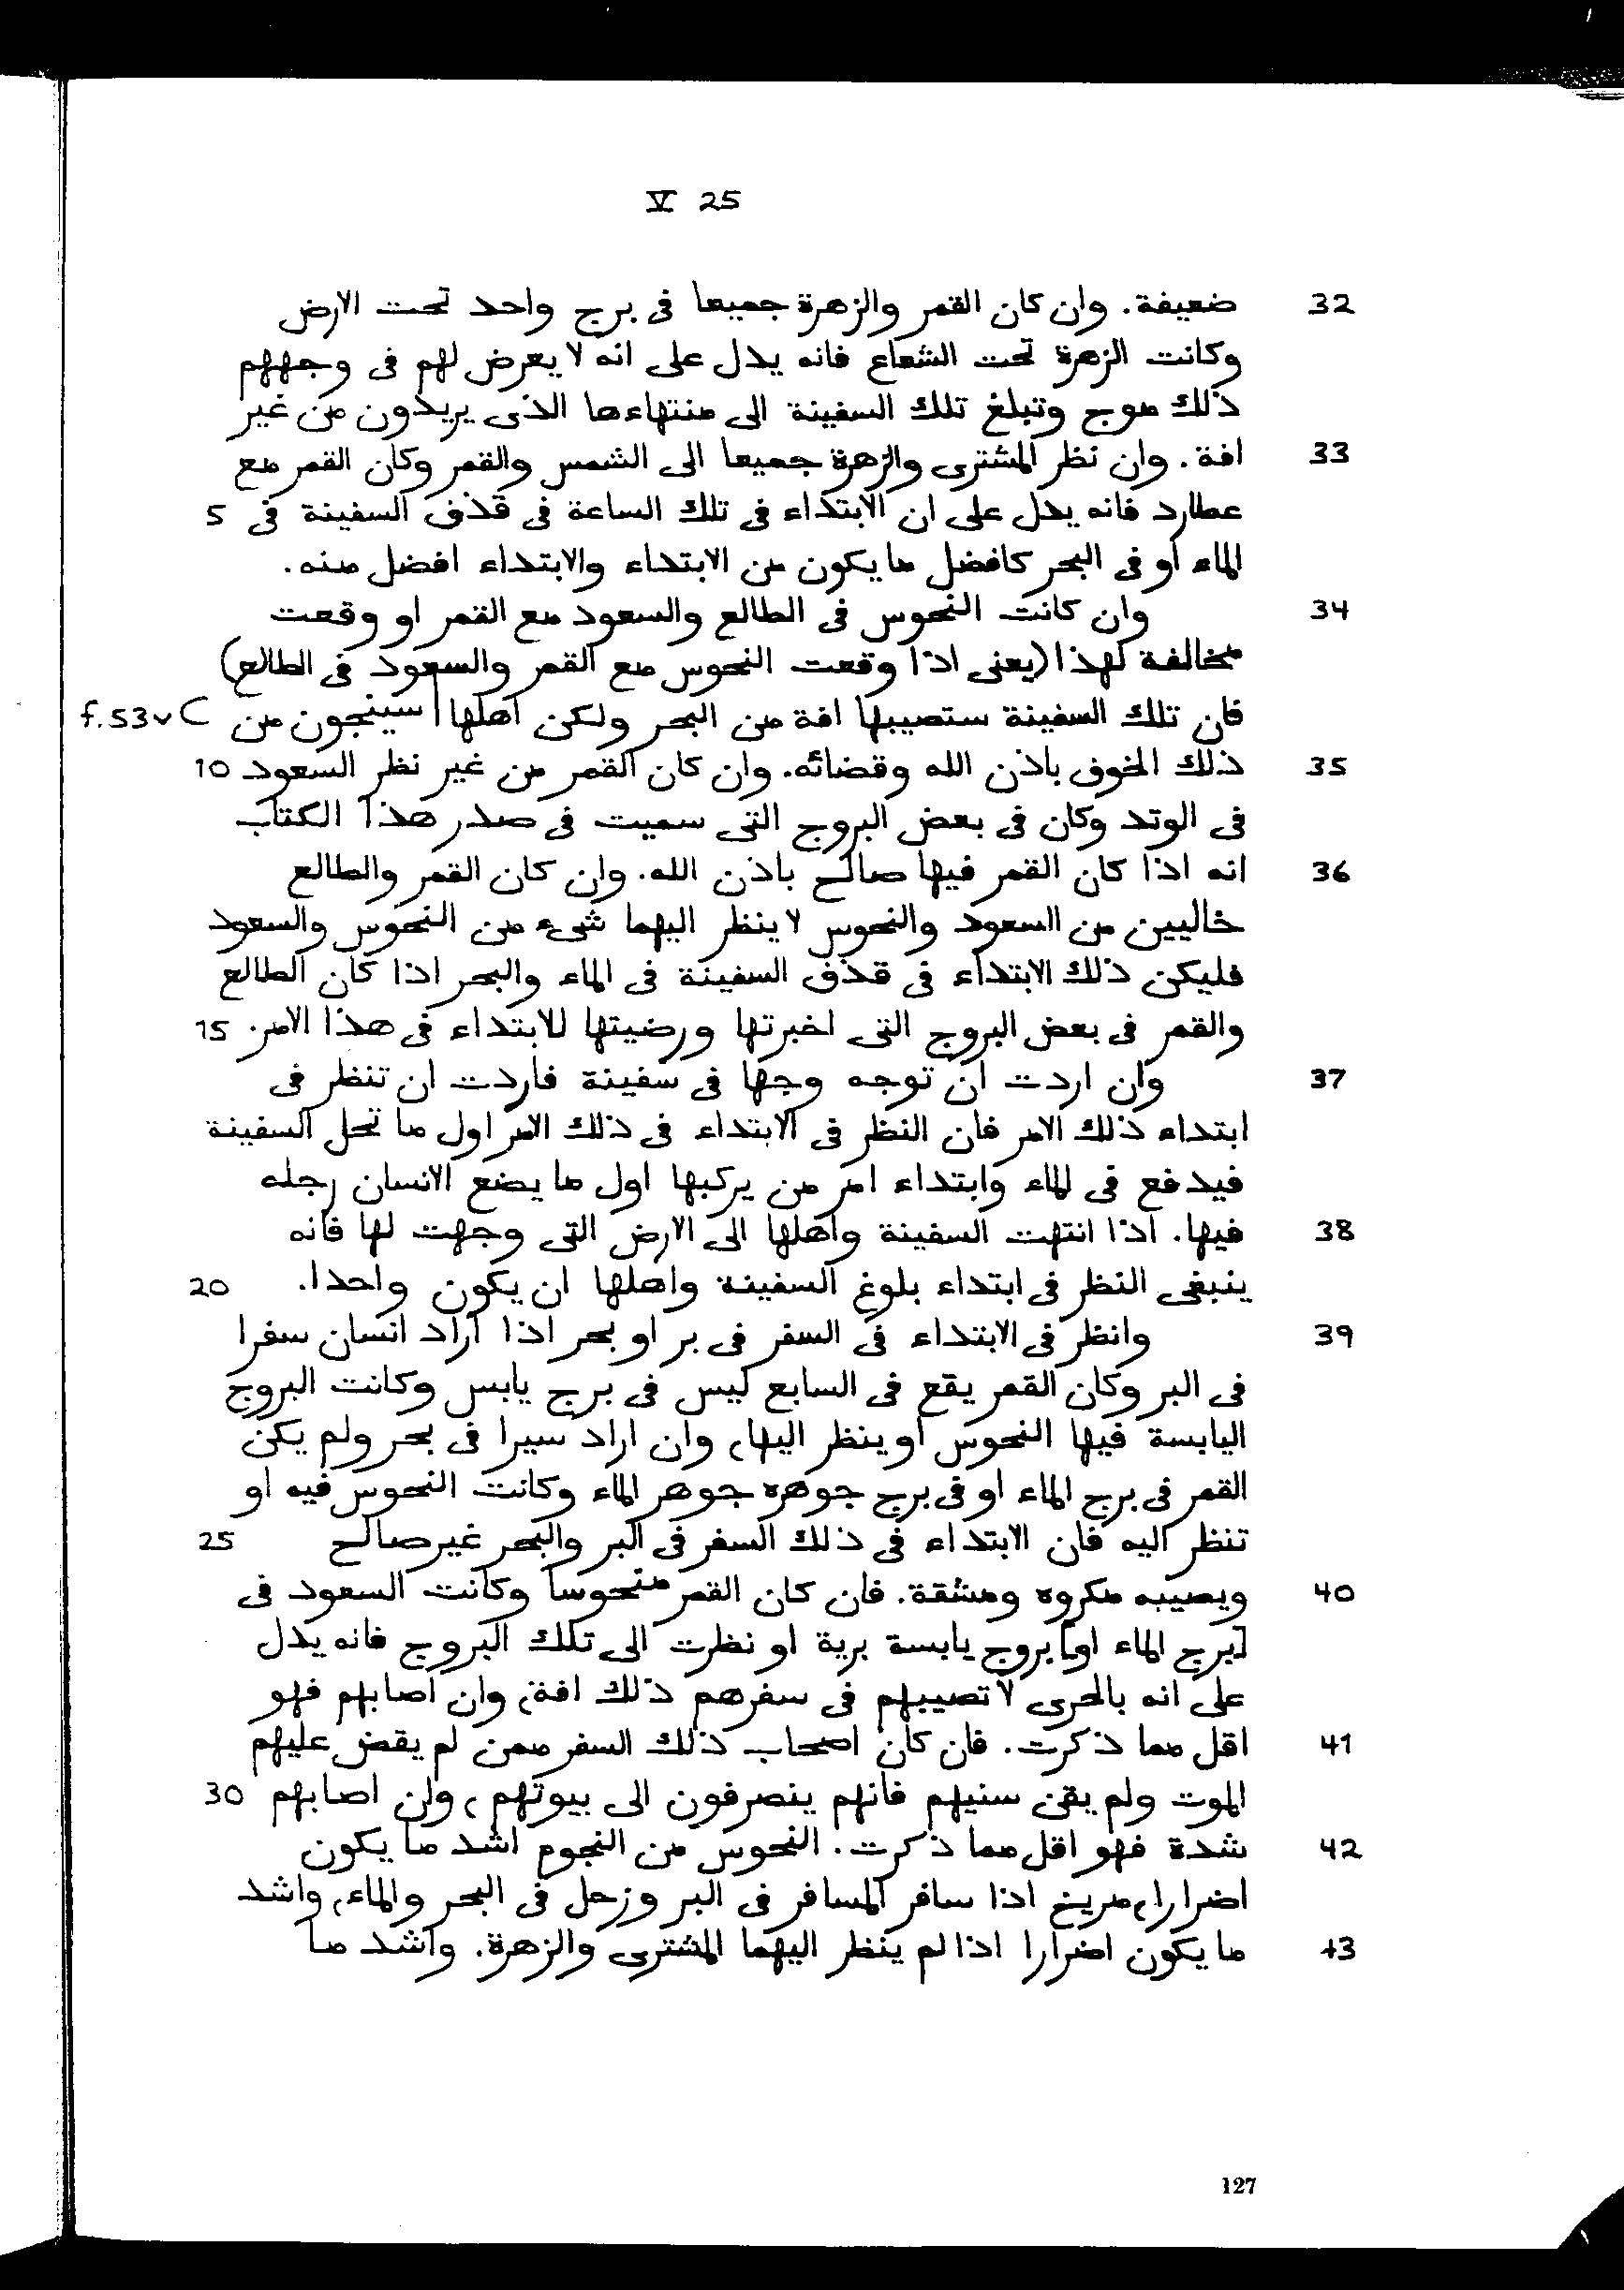 V 25
32 ضعيفة. وان كان القمر والزهرة جميعا فى برج واحد تحت الارض
وكانت الزهرة تحت الشعاع فانه يدل على انه لا يعرض لهم فى وجههم
ذلك موج وتبلغ تلك السفينة الى منتهاءها الذى يريدون من غير
33 افة. وان نظر المشترى والزهرة جميعا الى الشمس والقمر وكان القمر مع
عطارد فانه يدل على ان الابتداء فى تلك الساعة فى قذف السفينة فى 5
الماء او فى البحر كافضل ما يكون من الابتداء والابتداء افضل منه.
34 وان كانت النحوس فى الطالع والسعود مع القمر او وقعت
مخالفة لهذا (يعنى اذا وقعت النحوس مع القمر والسعود فى الطالع)
فان تلك السفينة ستصيبها افة من البحر ولكن اهلها | سينجون من f. 53v C
35 ذلك الخوف باذن الله وقضائه. وان كان القمر من غير نظر السعود 10
فى الوتد وكان فى بعض البروج التى سميت فى صدر هذا الكتاب
36 انه اذا كان القمر فيها صالح باذن الله. وان كان القمر والطالع
خاليين من السعود والنحوس لا ينظر اليهما شىء من النحوس والسعود
فليكن ذلك الابتداء فى قذف السفينة فى الماء والبحر اذا كان الطالع
والقمر فى بعض البروج التى اخبرتها ورضيتها للابتداء فى هذا الامر. 15
37 وان اردت ان توجه وجها فى سفينة فاردت ان تنظر فى
ابتداء ذلك الامر فان النظر فى الابتداء فى ذلك الامر اول ما تحل السفينة
فيدفع فى الماء وابتداء امر من يركبها اول ما يضع الانسان رجله
38 فيها. اذا انتهت السفينة واهلها الى الارض التى وجهت لها فانه
ينبغى النظر فى ابتداء بلوغ السفينة واهلها ان يكون واحدا. 20
39 وانظر فى الابتداء فى السفر فى بر او بحر اذا اراد انسان سفرا
فى البر وكان القمر يقع فى السابع ليس فى برج يابس وكانت البروج
اليابسة فيها النحوس او ينظر اليها، وان اراد سيرا فى بحر ولم يكن
القمر فى برج الماء او فى برج جوهره جوهر الماء وكانت النحوس فيه او
تنظر اليه فان الابتداء فى ذلك السفر فى البر والبحر غير صالح 25
40 ويصيبه مكروه ومشقة. فان كان القمر منحوسا وكانت السعود فى
[برج الماء او] بروج يابسة برية او نظرت الى تلك البروج فانه يدل
على انه بالحرى لا تصيبهم فى سفرهم ذلك افة، وان اصابهم فهو
41 اقل مما ذكرت. فان كان اصحاب ذلك السفر ممن لم يقض عليهم
الموت ولم يقن سنيهم فانهم ينصرفون الى بيوتهم، وان اصابهم 30
42 شدة فهو اقل مما ذكرت. النحوس من النجوم اشد ما يكون
اضرارا، مريخ اذا سافر المسافر فى البر وزحل فى البحر والماء، واشد
43 ما يكون اضرارا اذا لم ينظر اليهما المشترى والزهرة. واشد ما
127